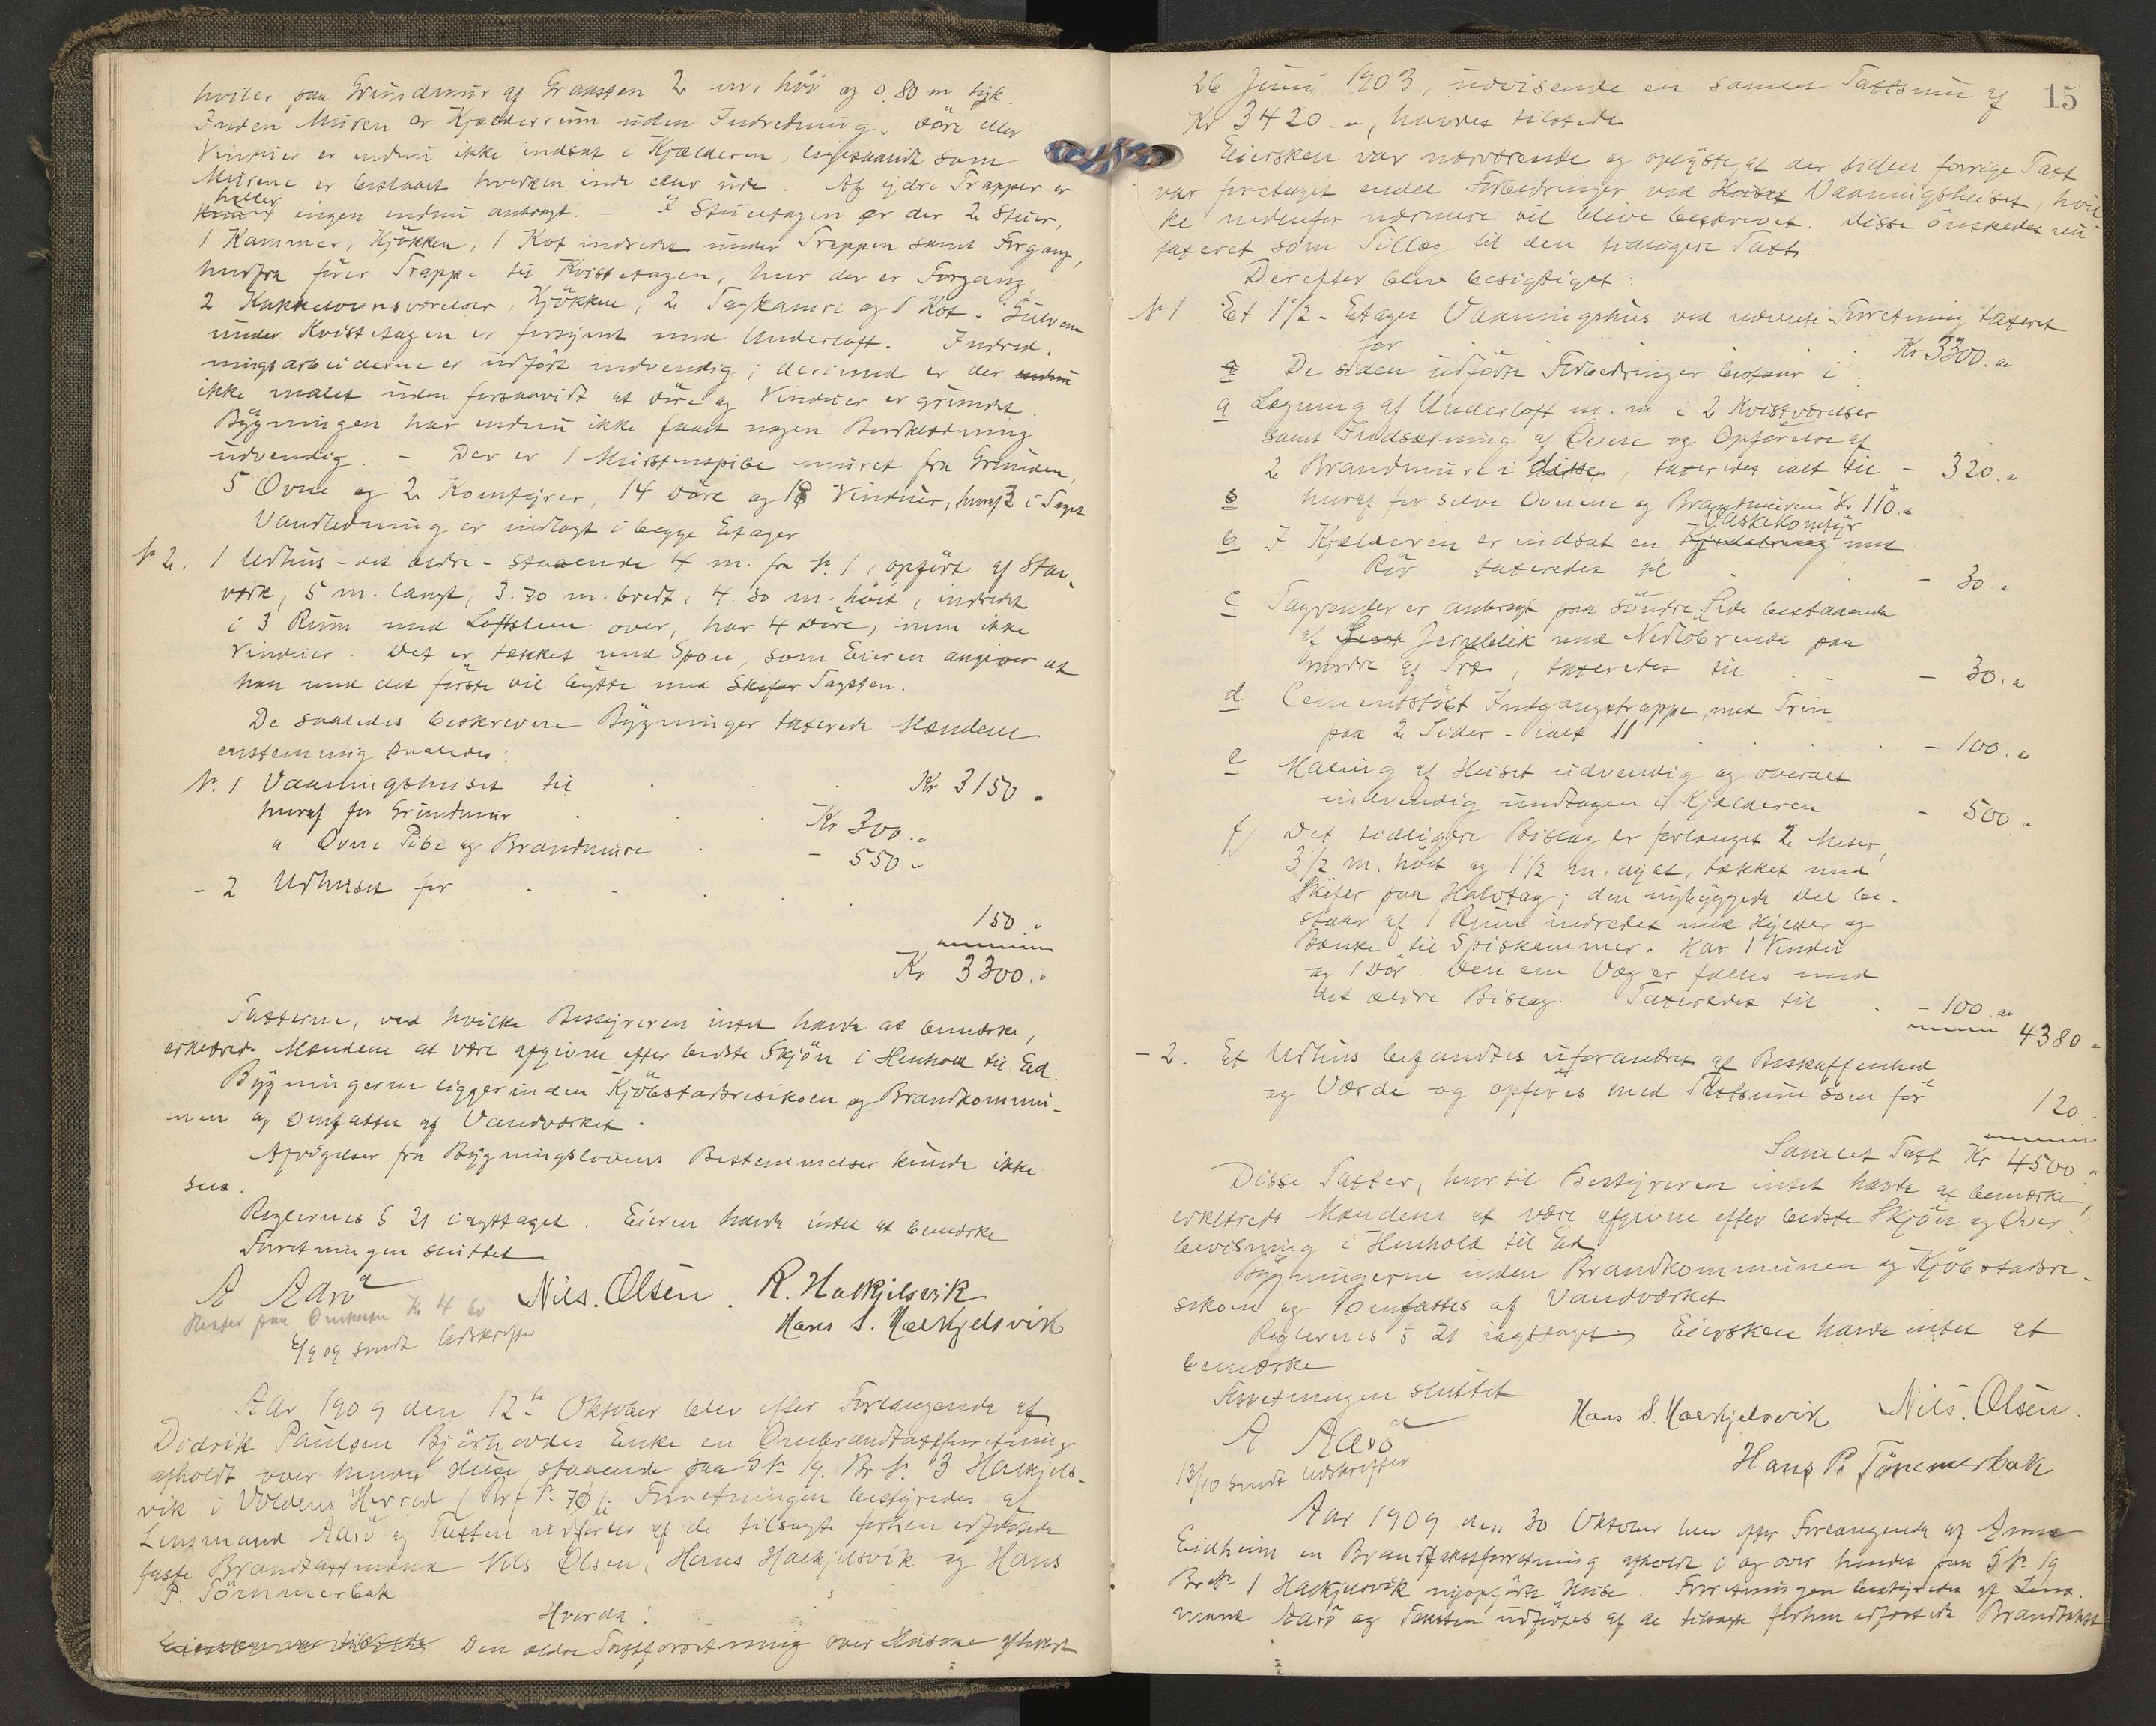 hviler paa Grundmur af Graasten 2 m. høi og 0.80 m tyk.
Inden Muren er Kjælderrum uden Indredning. Døre eller
Vinduer er endnu ikke indsat i Kjælderen, ligesaavidt som
Murene er berappet hverken inde eller ude. Af ydre Trapper er
heller
ingen endnu anbragt. – I Stueetagen er der 2 Stuer,
1 Kammer, Kjøkken, 1 Kot indredet under Trappen samt Forgang,
hvorfra fører Trappe til Kvistetagen, hvor der er Forgang,
2 Kakkelovnsværelser, Kjøkken, 2 Tagkamre og 1 Kot. Gulvene
under Kvistetagen er forsynt med Underloft. Indred-
ningsarbeiderne er udført indvendig; derimod er der endnu
ikke malet uden forsaavidt at Døre og Vinduer er grundet.
Bygningen har endnu ikke faaet nogen Bordklædning
udvendig. – Der er 1 Murstenspibe muret fra Grunden,
5 Ovne og 2 Komfyrer, 14 Døre og 18 Vinduer, hvoraf 2 i Taget
Vandledning er indlagt i begge Etager
№ 2. 1 Udhus – det ældre – staaende 4 m. fra № 1, opført af Stav-
værk, 5 m. langt, 3.70 m. bredt, 4.30 m. høit, indredet
i 3 Rum med Loftslem over, har 4 Døre, men ikke
Vinduer. Det er tækket med Spon, som Eieren angiver at
han med det første vil bytte med Skifer Tagsten.
De saaledes beskrevne Bygninger taxerede Mændene
enstemmig saaledes:
№ 1 Vaaningshuset til Kr 3150 „
hvoraf for Grundmur Kr 300 „
„ Ovne Pibe og Brandmure – 550 „
– 2 Udhuset for
150 „
Kr 3300 „
Taxterne, ved hvilke Bestyreren intet havde at bemærke,
erklærede Mændene at være afgivne efter bedste Skjøn i Henhold til Ed.
Bygningerne ligger inden Kjøbstadsrisikoen og Brandkommu-
nen og omfattes af Vandværket.
Afvigelser fra Bygningslovens Bestemmelser kunde ikke
sees.
Reglernes § 21 iagttaget. Eieren havde intet at bemærke
Forretningen sluttet
A Aarø Nils. Olsen. R. Halkjelsvik
Hans S. Halkjelsvik
Kr 4
09 sendt Udskrifter
Aar 1909 den 12te Oktober blev efter Forlangende af
Didrik Paulsen Bjørhovdes Enke en Ombrandtaxtforretning
afholdt over hendes Huse, staaende paa G № 19. Br № 3 Halkjels-
vik i Voldens Herred (Brf № 70). Forretningen bestyredes af
Lensmand Aarø og Taxten udførtes af de tilsagte forhen edfæstede
faste Brandtaxtmænd Nils Olsen, Hans Halkjelsvik og Hans
P. Tømmerbak
Hverda!
Eiersken var tilstede Den ældre Taxtforretning over Husene afholdt
15
26 Juni 1903, udvisende en samlet Taxtsum af
Kr 3420.„, havdes tilstede
Eiersken var nærværende og oplyste at der siden forrige Taxt
var foretaget endel Forbedringer ved Huset Vaaningshuset, hvil-
ke nedenfor nærmere vil blive beskrevet. Disse ønskedes nu
taxeret som Tillæg til den tidligere Taxt.
Derefter blev besigtiget:
№ 1 Et 1½-Etages Vaaningshus ved nævnte Forretning taxeret
for Kr 3300.„
De siden udførte Forbedringer bestaar i:
a Lægning af Underloft m. m i 2 Kvistværelser
samt Indsætning af Ovne og Opførelse af
2 Brandmure i disse, taxeredes ialt til – 320.„
hvoraf for selve Ovnene og Brandmurene Kr 110.„
Vaskekomfyr
b I Kjælderen er indsat en med
Rør taxeredes til – 30.„
c Tagrender er anbragt paa søndre Side bestaaende
af Jernblik med Nedløbsrende paa
nordre af Træ, taxeredes til – 30.„
d Cementstøbt Indgangstrappe, med Trin
paa 2 Sider – ialt 11 – 100.„
e Maling af Huset udvendig og overalt
indvendig undtagen i Kjælderen – 500.„
f) Det tidligere Bislag er forlænget 2 Meter,
3½ m. høit og 1½ m. dybt, tækket med
Skifer paa Halvtag; den nybyggede Del be-
staar af 1 Rum indredet med Hylder og
Bænke til Spiskammer. Har 1 Vindu
og 1 Dør. Den ene Væg er fælles med
det ældre Bislag. Taxeredes til – 100.„
4380 „
– 2. Et Udhus befandtes uforandret af Beskaffenhed
og Værdi og opføres med Taxtsum som før
120.
Samlet Taxt Kr 4500 „
Disse Taxter, hvortil Bestyreren intet havde at bemærke,
erklærede Mændene at være afgivne efter bedste Skjøn og Over-
bevisning i Henhold til Ed
Bygningerne inden Brandkommunen og Kjøbstadsri-
sikoen og omfattes af Vandværket
Reglernes § 21 iagttaget. Eiersken havde intet at
bemærke
Forretningen sluttet
A Aarø Hans S. Halkjelsvik Nils. Olsen.
Hans P. Tømmerbak
13/10 sendt Udskrifter
Aar 1909 den 30 Oktober blev efter Forlangende af Anne
Eidheim en Brandtakstforretning afholdt i og over hendes paa G № 19
Br № 1 Halkjelsvik nyopførte Huse. Forretningen bestyredes af Lens-
mand Aarø og Taksten udførtes af de tilsagte forhen edfæstede Brandtakst